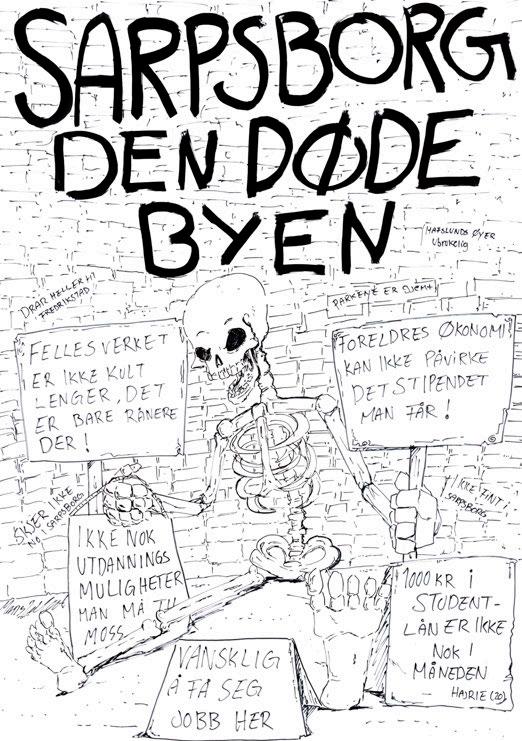 SARPSBORG
DEN DØDE
BYEN
HAFSLUNDS ØYER
Ubrukelig
DRAR HELLER til
FREDRIKSTAD
PARKENE ER
FELLESVERKET
ER IKKE KULT
LENGER, DET
ER BARE RÅNERE
DER!
FORELDRES ØKONOMI
KAN IKKE PÅVIRKE
DET STIPENDET
MAN FÅR!
SKJER IKKE
NO I SARPSBORG
IKKE FINT i
SARPSBORG
IKKE NOK
UTDANNINGS
MULIGHETER
MAN MÅ TIL
MOSS
1000 KR i
STUDENT-
LÅN ER IKKE
NOK I
MÅNEDEN
HAJRIE (20)
VANSKLIG
Å FÅ SEG
JOBB HER